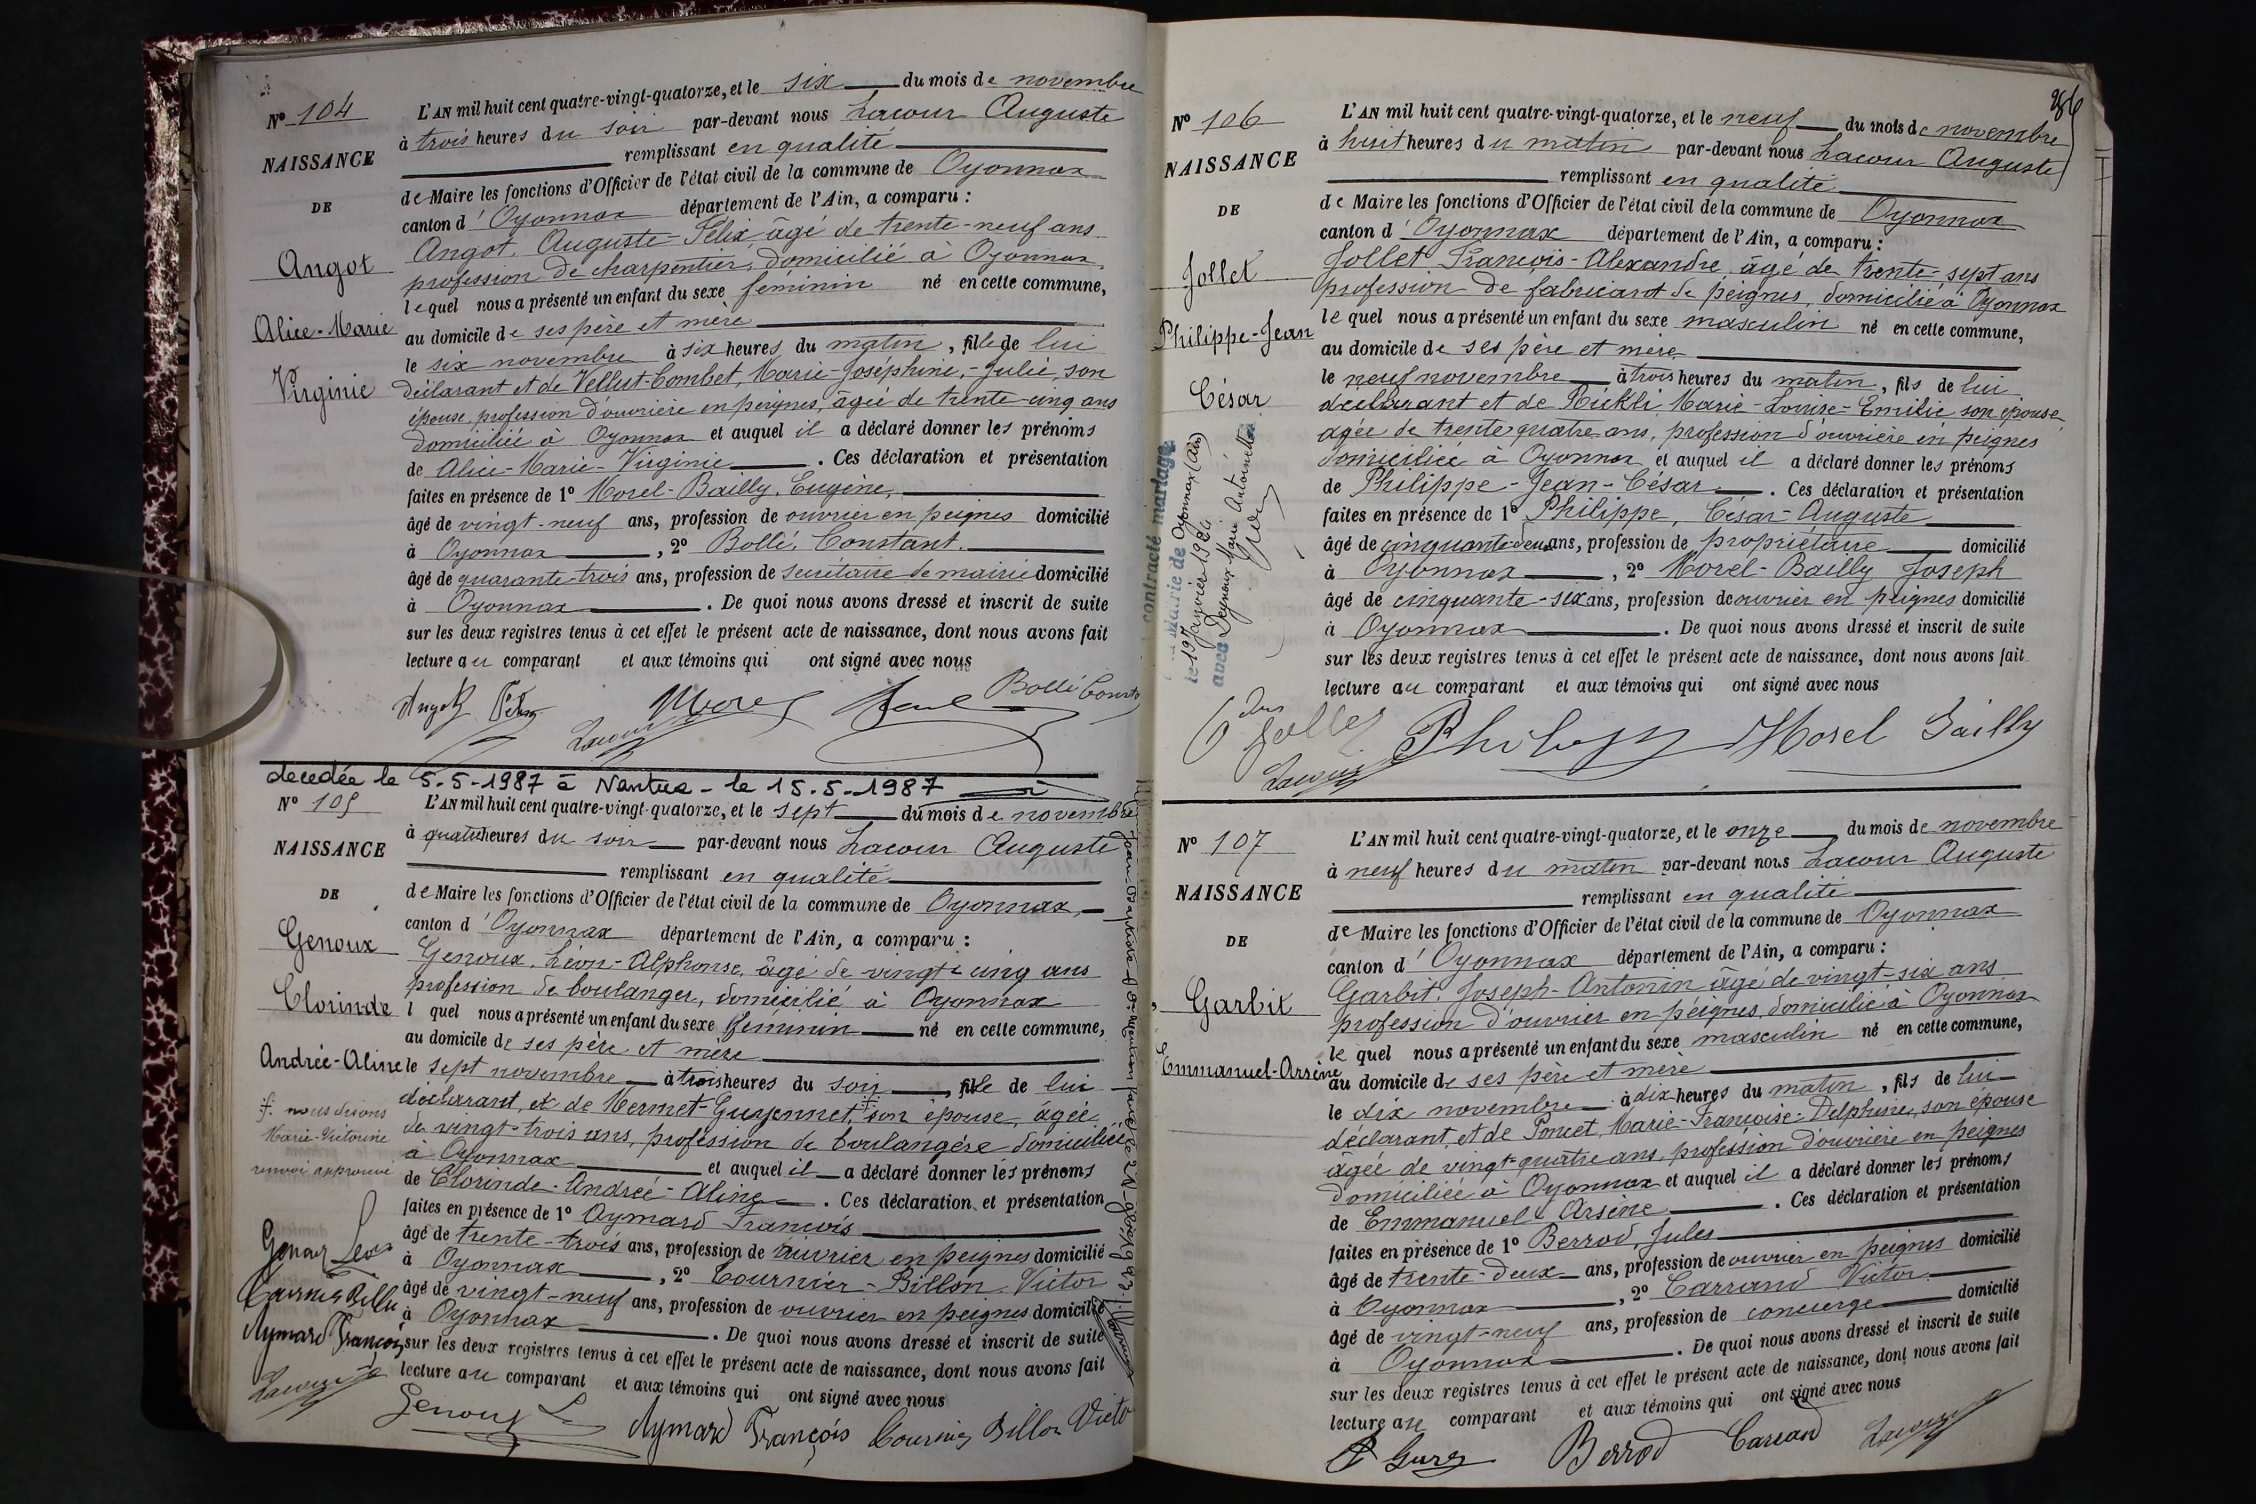 Nº 104
NAISSANCE
DE
Angot
Alice-Marie
Virginie
L'AN mil huit cent quatre-vingt-quatorze, et le six du mois de novembre
à trois heures du soir par-devant nous Lacour Auguste
remplissant en qualité
de Maire les fonctions d'Officier de l'état civil de la commune de Oyonnax
canton d'Oyonnax département de l'Ain, a comparu :
Angot, Auguste-Félix âgé de trente-neuf ans
profession de charpentier, domicilié à Oyonnax,
lequel nous a présenté un enfant du sexe féminin né en cette commune,
au domicile de ses père et mère
le six novembre à six heures du matin, fille de lui
déclarant et de Vellut-Combet, Marie-Joséphine-Julie, son
épouse, profession d'ouvrière en peignes, âgée de trente-cinq ans
domiciliée à Oyonnax et auquel il a déclaré donner les prénoms
de Alice-Marie-Virginie. Ces déclaration et présentation
faites en présence de 1º Morel-Bailly, Eugène,
âgé de vingt-neuf ans, profession de ouvrier en peignes domicilié
à Oyonnax, 2º Bollé, Constant.
âgé de quarante-trois ans, profession de secrétaire de mairie domicilié
à Oyonnax. De quoi nous avons dressé et inscrit de suite
sur les deux registres tenus à cet effet le présent acte de naissance, dont nous avons fait
lecture au comparant et aux témoins qui ont signé avec nous
Morel
Bollé Const
Lacour
decedée le 5.5-1987 à Nantua - le 15.5.1987
Nº 105
NAISSANCE
DE
Genoux
Clorinde
Andrée-Aline
L'AN mil huit cent quatre-vingt-quatorze, et le sept du mois de novembre
à quatre heures du soir par-devant nous Lacour Auguste
remplissant en qualité
de Maire les fonctions d'Officier de l'état civil de la commune de Oyonnax,
canton d'Oyonnax département de l'Ain, a comparu :
Genoux, Léon-Alphonse, âgé de vingt-cinq ans
profession de boulanger, domicilié à Oyonnax
l quel nous a présenté un enfant du sexe féminin né en cette commune,
au domicile de ses père et mère
le sept novembre à trois heures du soir, fille de lui
déclarant, et de Mermet-Guyennet, son épouse, âgée
de vingt-trois ans, profession de boulangère domiciliée
à Oyonnax et auquel il a déclaré donner les prénoms
de Clorinde-Andrée-Aline. Ces déclaration et présentation
faites en présence de 1º Aymard François
âgé de trente-trois ans, profession de ouvrier en peignes domicilié
à Oyonnax, 2º Tournier-Billon Victor
âgé de vingt-neuf ans, profession de ouvrier en peignes domicilié
à Oyonnax. De quoi nous avons dressé et inscrit de suite
sur les deux registres tenus à cet effet le présent acte de naissance, dont nous avons fait
lecture au comparant et aux témoins qui ont signé avec nous
nous disons
Marie-Victorine
renvoi approuvé
Genoux Léon
Aymard François
Lacour
Genoux L
Aymard François Tournier Billon Victor
286
Nº 106
NAISSANCE
DE
Jollet
Philippe-Jean
César
contracté mariage
Mairie de Oyonnax (Ain)
avec
L'AN mil huit cent quatre-vingt-quatorze, et le neuf du mois de novembre
à huit heures du matin par-devant nous Lacour Auguste
remplissant en qualité
de Maire les fonctions d'Officier de l'état civil de la commune de Oyonnax
canton d'Oyonnax département de l'Ain, a comparu :
Jollet François-Alexandre, âgé de trente-sept ans
profession de fabricant de peignes, domicilié à Oyonnax
lequel nous a présenté un enfant du sexe masculin né en cette commune,
au domicile de ses père et mère
le neuf novembre à trois heures du matin, fils de lui
déclarant et de Kickli, Marie-Louise-Emilie son épouse,
âgée de trente quatre ans, profession d'ouvrière en peignes
domiciliée à Oyonnax et auquel il a déclaré donner les prénoms
de Philippe-Jean-César. Ces déclaration et présentation
faites en présence de 1º Philippe, César-Auguste
âgé de cinquante deux ans, profession de propriétaire domicilié
à Oyonnax, 2º Morel-Bailly Joseph
âgé de cinquante-six ans, profession de ouvrier en peignes domicilié
à Oyonnax. De quoi nous avons dressé et inscrit de suite
sur les deux registres tenus à cet effet le présent acte de naissance, dont nous avons fait
lecture au comparant et aux témoins qui ont signé avec nous
Jollet Morel Bailly
Lacour
Nº 107
NAISSANCE
DE
Garbit
Emmanuel-Arsène
L'AN mil huit cent quatre-vingt-quatorze, et le onze du mois de novembre
à neuf heures du matin par-devant nous Lacour Auguste
remplissant en qualité
de Maire les fonctions d'Officier de l'état civil de la commune de Oyonnax
canton d'Oyonnax département de l'Ain, a comparu :
Garbit, Joseph-Antonin âgé de vingt-six ans
profession d'ouvrier en peignes, domicilié à Oyonnax
lequel nous a présenté un enfant du sexe masculin né en cette commune,
au domicile de ses père et mère
le dix novembre à dix heures du matin, fils de lui
déclarant, et de Poncet, Marie-Françoise-Delphine, son épouse
âgée de vingt-quatre ans, profession d'ouvrière en peignes
domiciliée à Oyonnax et auquel il a déclaré donner les prénoms
de Emmanuel-Arsène. Ces déclaration et présentation
faites en présence de 1º Berrod, Jules
âgé de trente-deux ans, profession de ouvrier en peignes domicilié
à Oyonnax, 2º Carrand Victor
âgé de vingt-neuf ans, profession de concierge domicilié
à Oyonnax. De quoi nous avons dressé et inscrit de suite
sur les deux registres tenus à cet effet le présent acte de naissance, dont nous avons fait
lecture au comparant et aux témoins qui ont signé avec nous
Berrod Carrand Lacour